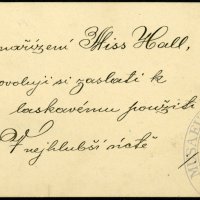 nařízení Miss Hall,
ovoluji si zaslati k
laskavému použití
V nejhlubší úctě